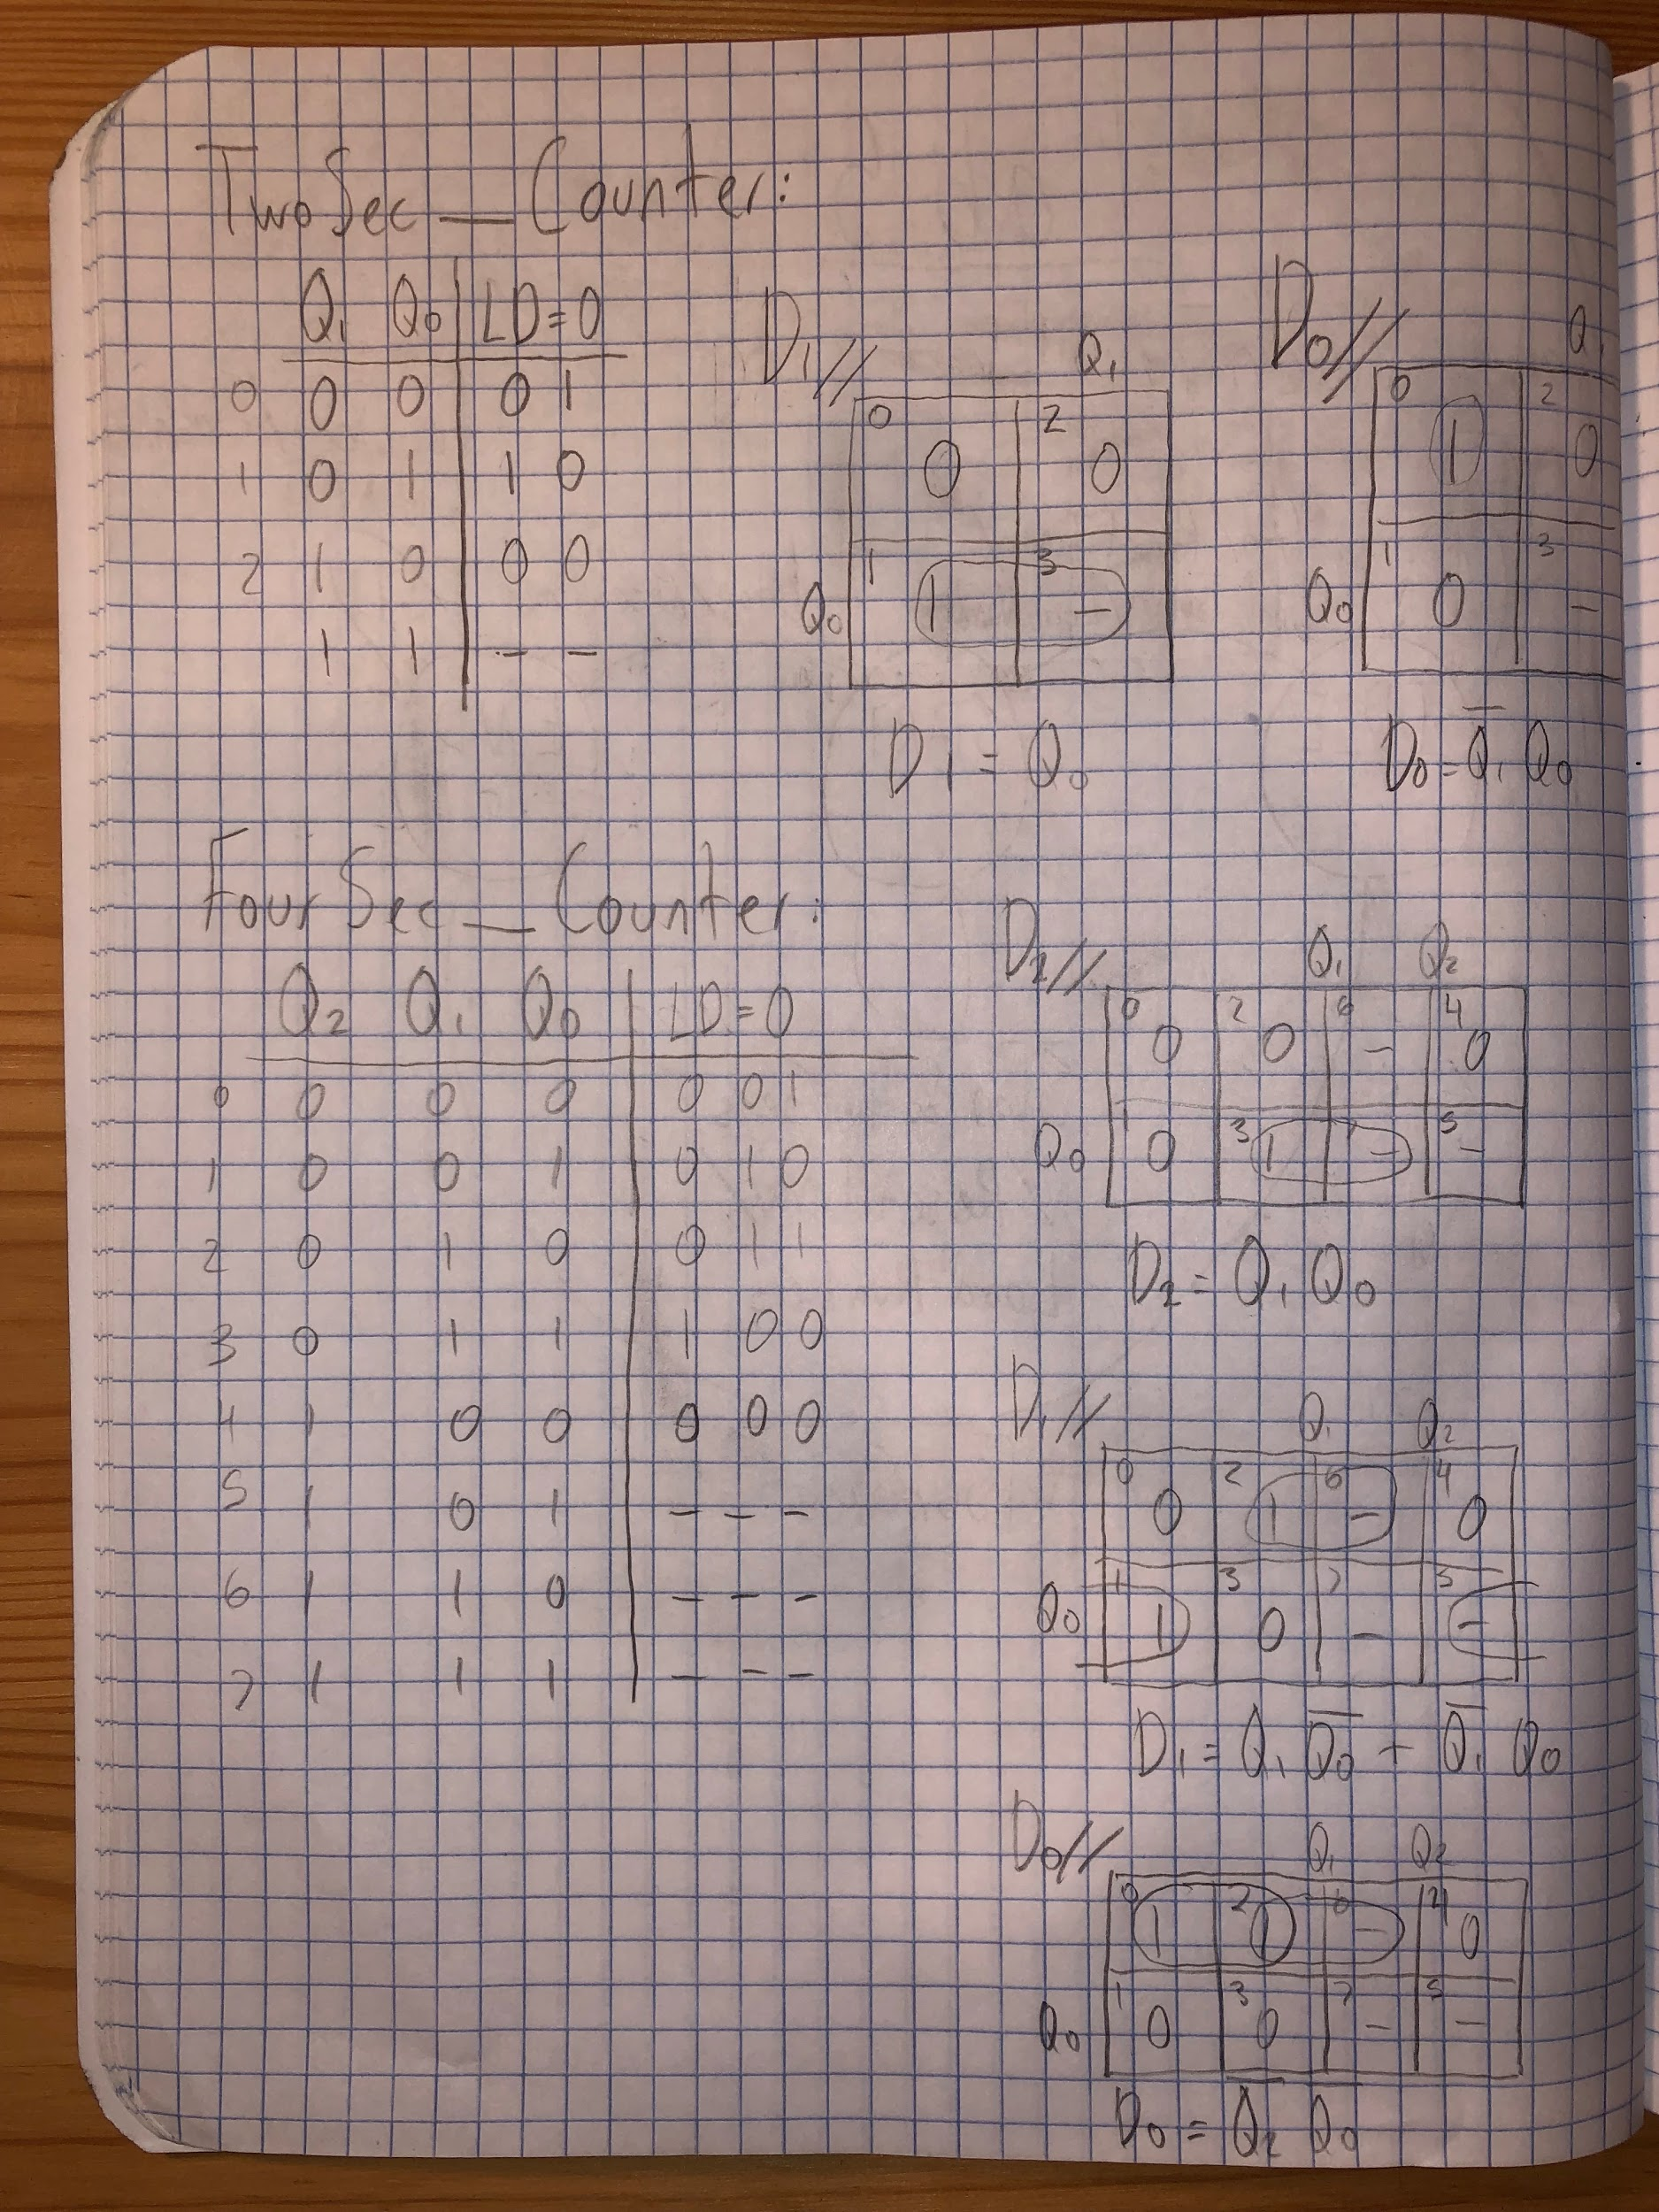 TwoSec_Counter:
Q₁ Q₀ | LD=0
0 0 0 | 0 1
1 0 1 | 1 0
2 1 0 | 0 0
1 1 | - -
D₁//
Q₁
0 0 | 2 0
Q₀ 1 1 | 3 -
D₁ = Q₀
D₀//
Q₁
0 1 | 2 0
Q₀ 1 0 | 3 -
D₀ = Q̅₁ Q₀
FourSec_Counter:
Q₂ Q₁ Q₀ | LD=0
0 0 0 0 | 0 0 1
1 0 0 1 | 0 1 0
2 0 1 0 | 0 1 1
3 0 1 1 | 1 0 0
4 1 0 0 | 0 0 0
5 1 0 1 | - - -
6 1 1 0 | - - -
7 1 1 1 | - - -
D₂//
Q₁ Q₂
0 0 | 2 0 | 6 - | 4 0
Q₀ 1 0 | 3 1 | 7 - | 5 -
D₂ = Q₁ Q₀
D₁//
Q₁ Q₂
0 0 | 2 1 | 6 - | 4 0
Q₀ 1 1 | 3 0 | 7 - | 5 -
D₁ = Q₁ Q̅₀ + Q̅₁ Q₀
D₀//
Q₁ Q₂
0 1 | 2 1 | 6 - | 4 0
Q₀ 1 0 | 3 0 | 7 - | 5 -
D₀ = Q̅₂ Q̅₀